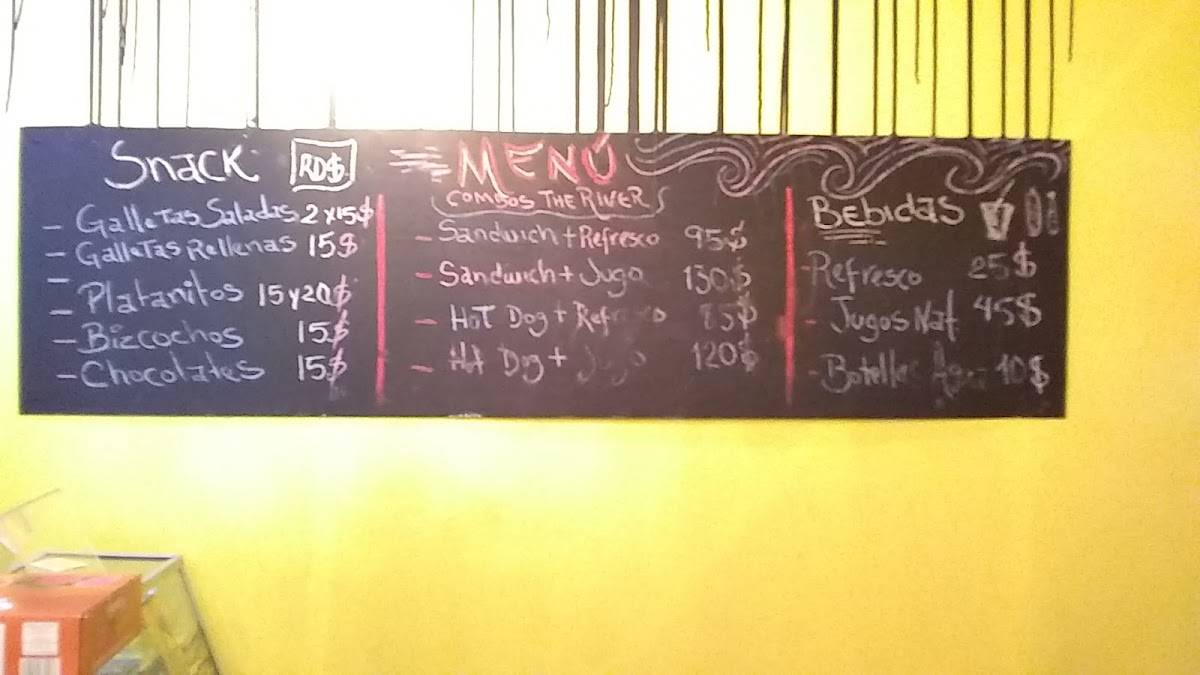 Snack RD$
- Galletas Saladas 2x15$
- Galletas Rellenas 15$
- Platanitos 15 y 20$
- Bizcochos 15$
- Chocolates 15$
MENÚ
COMBOS THE RIVER
- Sandwich + Refresco 95$
- Sandwich + Jugo 130$
- Hot Dog + Refresco 85$
- Hot Dog + Jugo 120$
Bebidas
- Refresco 25$
- Jugos Nat. 45$
- Botellas 10$